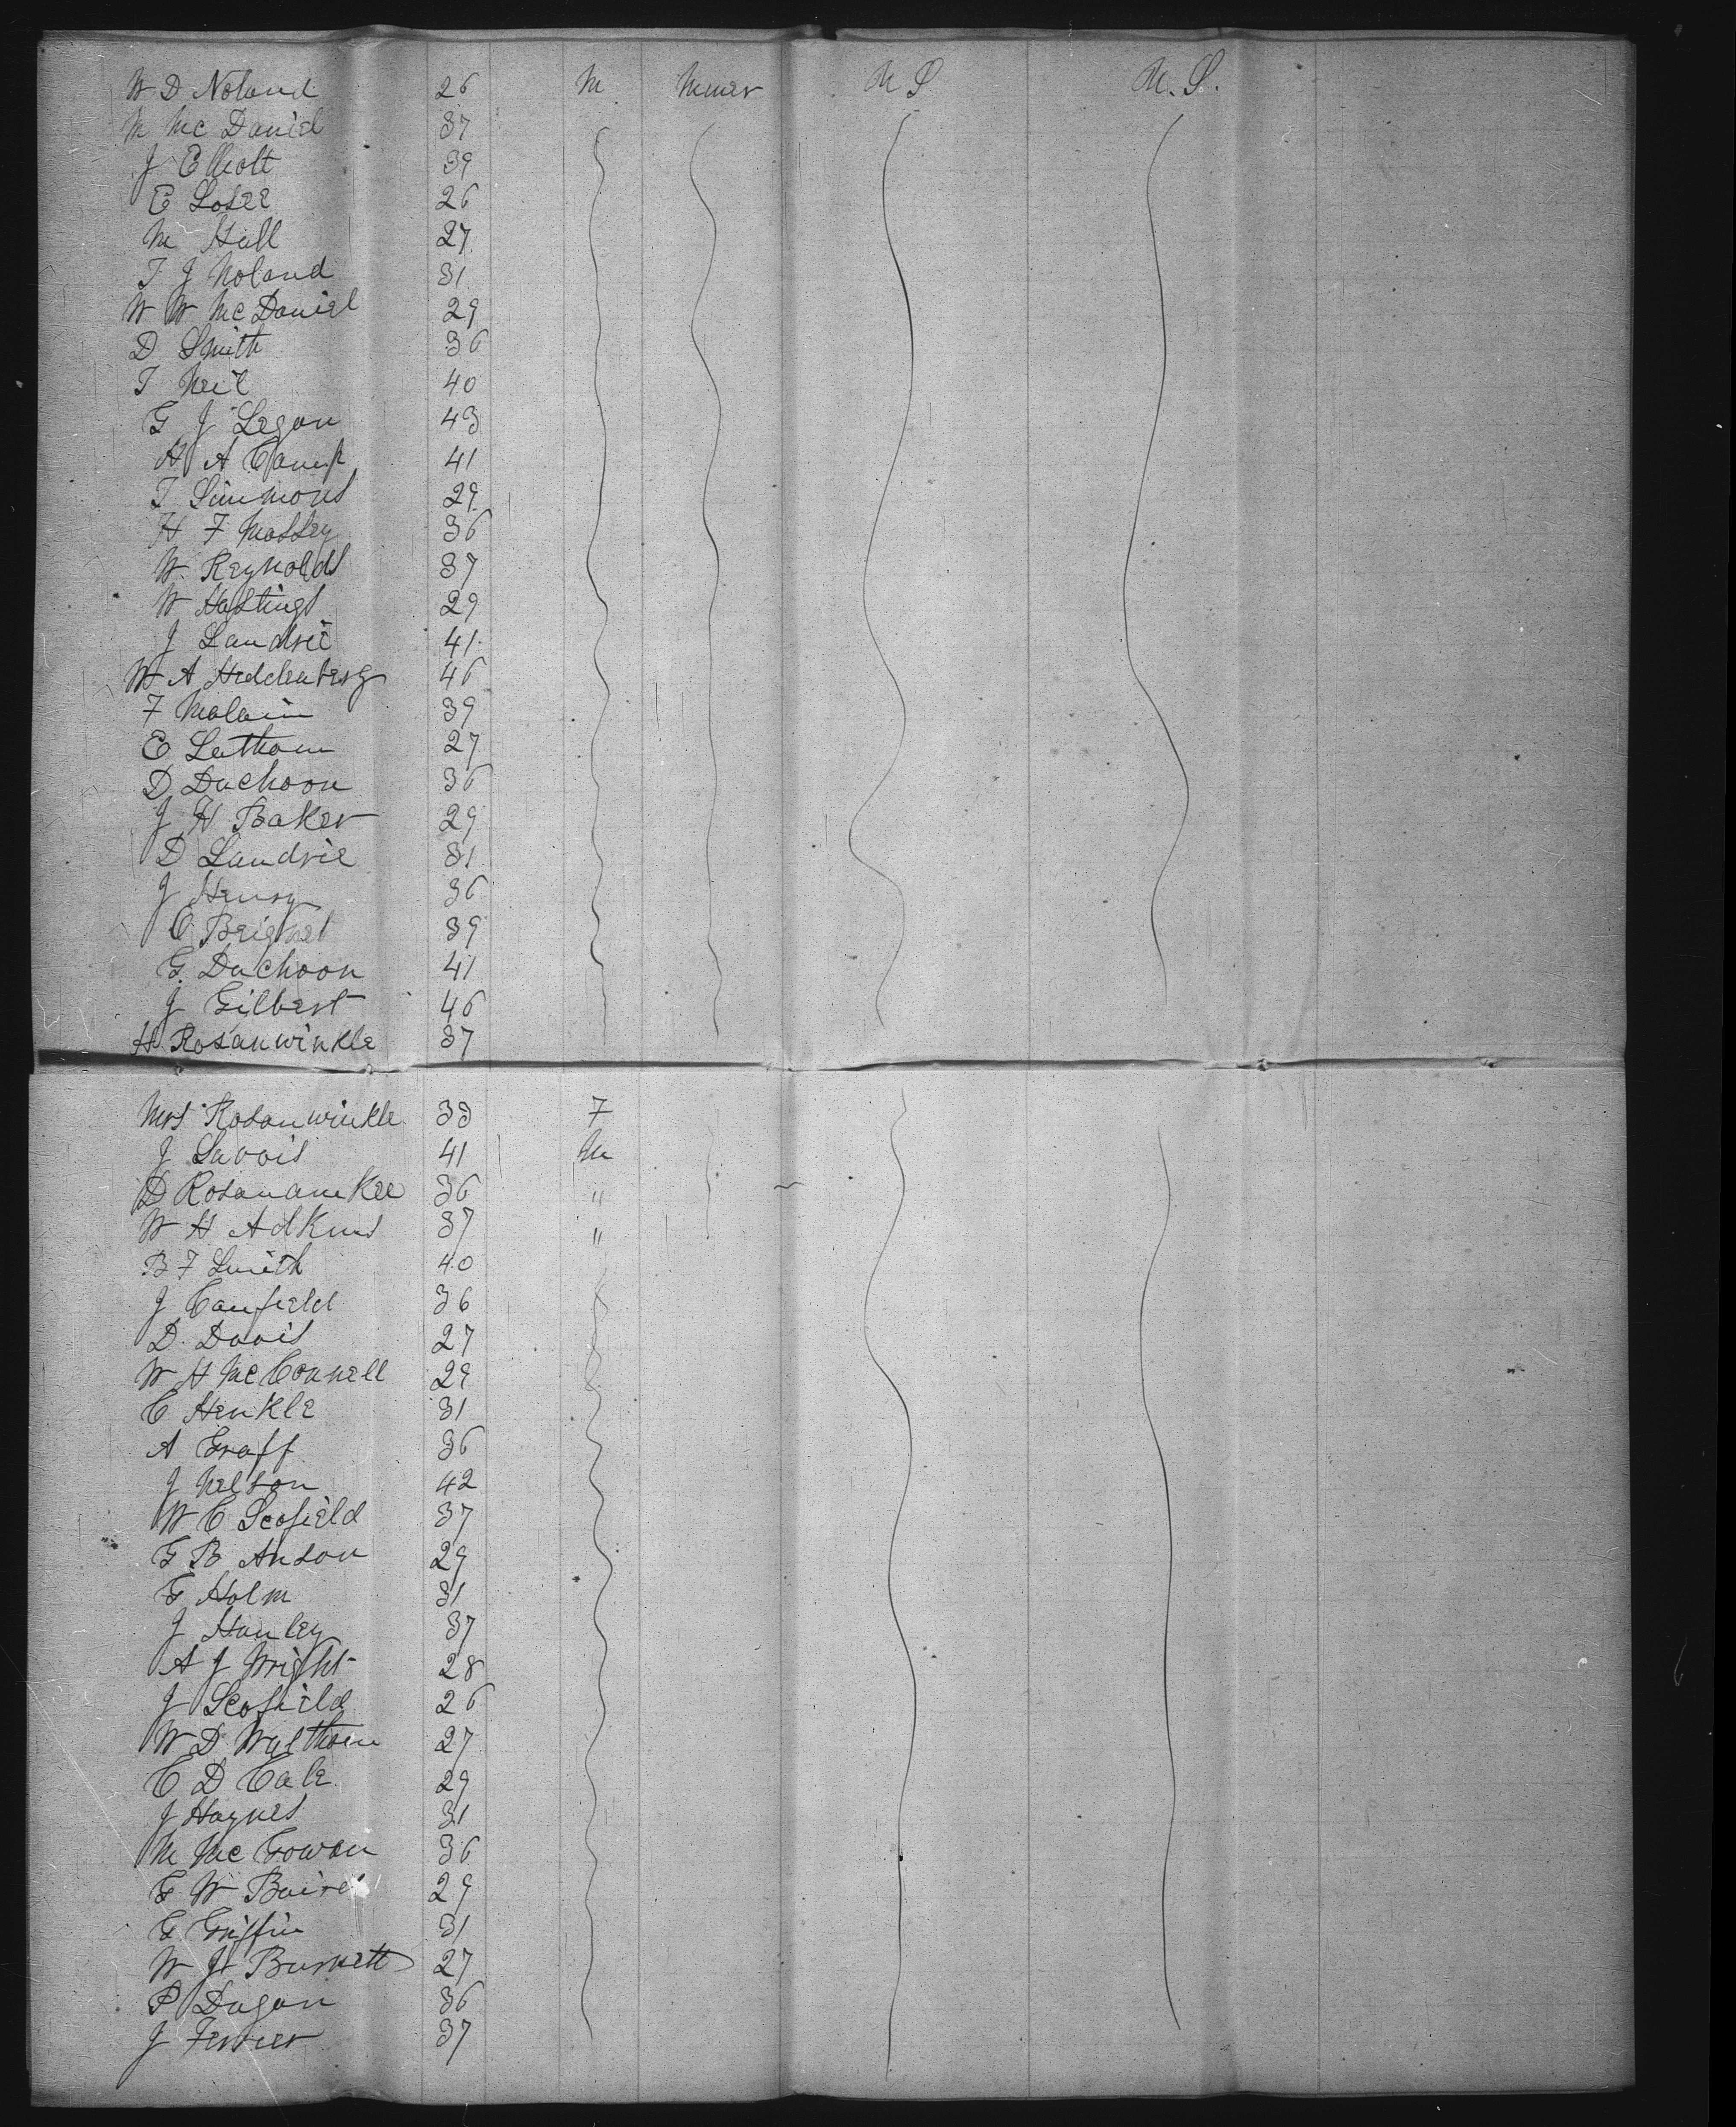 W D Noland 26 M Miner U S U. S.
M Mc Daniel 37
J Elliott 39
E Losee 26
M Hall 27
T J Noland 31
W W McDaniel 29
D Smith 36
T Neil 40
G J Legan 43
H A Camp 41
T Simmons 29
H F Massey 36
W Reynolds 37
W Hastings 29
J Landrie 41
W A Heddenberg 46
F 39
E Lathom 27
D Duchoon 36
J H Baker 29
D Landrie 31
J Henry 36
C 39
G Duchoon 41
J Gilbert 46
H Rosanwinkle 37
Mrs Rosanwinkle 33 F
J Savois 41 M
D 36 "
W H Adkins 37 "
B F Smith 40
J Canfield 36
D Davis 27
W H McConnell 29
C Henkle 31
A Graff 36
J Nelson 42
W C Scofield 37
G B Anson 29
G Holm 31
J Hanley 37
A J Wright 28
J Scofield 26
W D 27
C D Cale 29
J Haynes 31
M McGowan 36
G W Baird 29
G Griffin 31
W H Burnett 27
P Dugan 36
J Ferrier 37